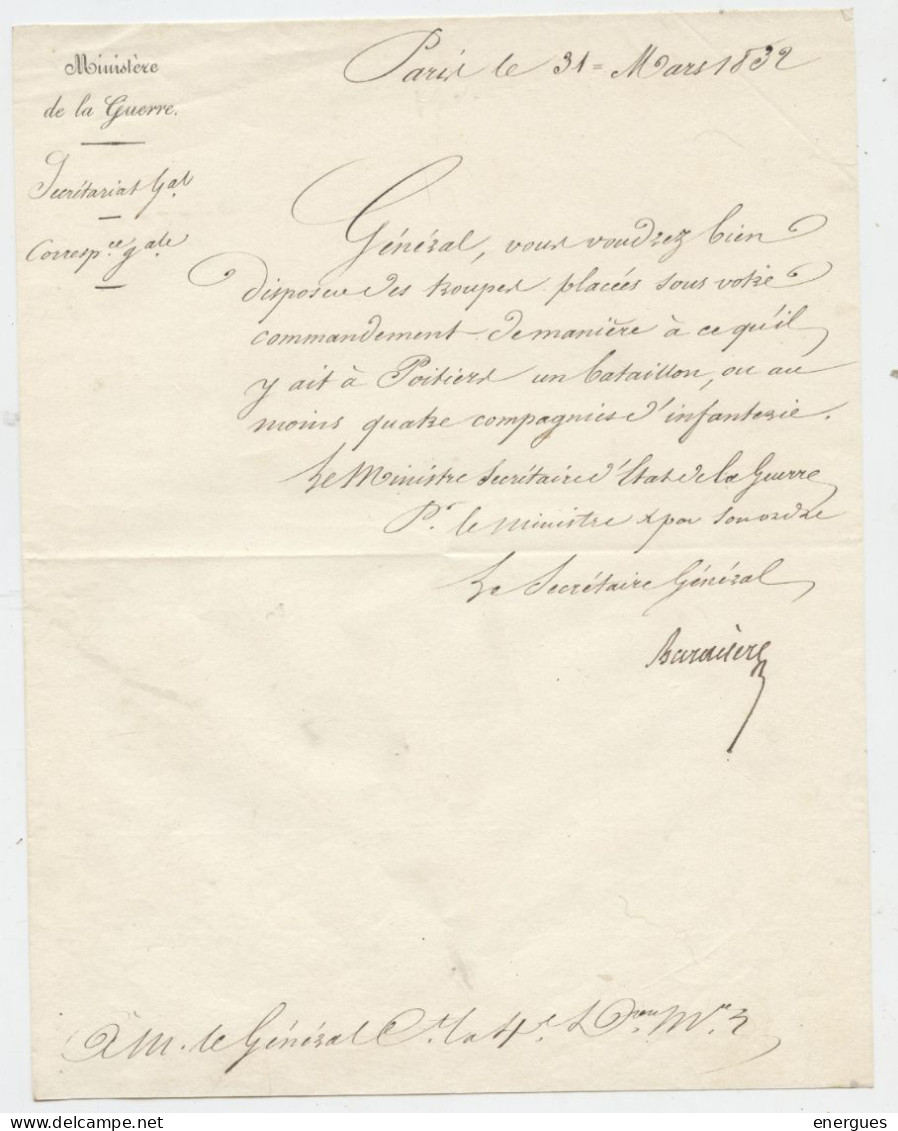 Ministère
de la Guerre.
Secrétariat Gal
Correspce gale
Paris le 31 = Mars 1832
Général, vous voudrez bien
disposer des troupes placées sous votre
commandement de manière à ce qu'il
y ait à Poitiers un bataillon, ou au
moins quatre compagnies d'infanterie.
Le Ministre Secrétaire d'Etat de la Guerre
Pr. le ministre & par son ordre
Le Secrétaire Général
A M. le Général Ct. la 4e.
energues